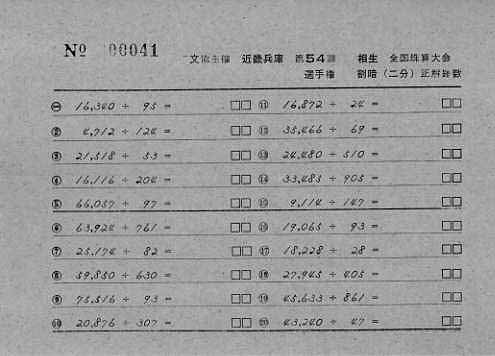 No 00041
主権 近畿兵庫 第54回 相生 全国珠算大会
選手権 割暗(二分)正解題数
① 16,340 ÷ 95 = □□ ⑪ 16,872 ÷ 24 = □□
② 4,712 ÷ 124 = □□ ⑫ 35,466 ÷ 69 = □□
③ 21,518 ÷ 53 = □□ ⑬ 24,480 ÷ 510 = □□
④ 16,116 ÷ 204 = □□ ⑭ 33,485 ÷ 905 = □□
⑤ 66,057 ÷ 97 = □□ ⑮ 9,114 ÷ 147 = □□
⑥ 63,924 ÷ 761 = □□ ⑯ 19,065 ÷ 93 = □□
⑦ 25,174 ÷ 82 = □□ ⑰ 18,228 ÷ 28 = □□
⑧ 59,850 ÷ 630 = □□ ⑱ 27,945 ÷ 405 = □□
⑨ 75,516 ÷ 93 = □□ ⑲ 45,633 ÷ 861 = □□
⑩ 20,876 ÷ 307 = □□ ⑳ 43,240 ÷ 47 = □□